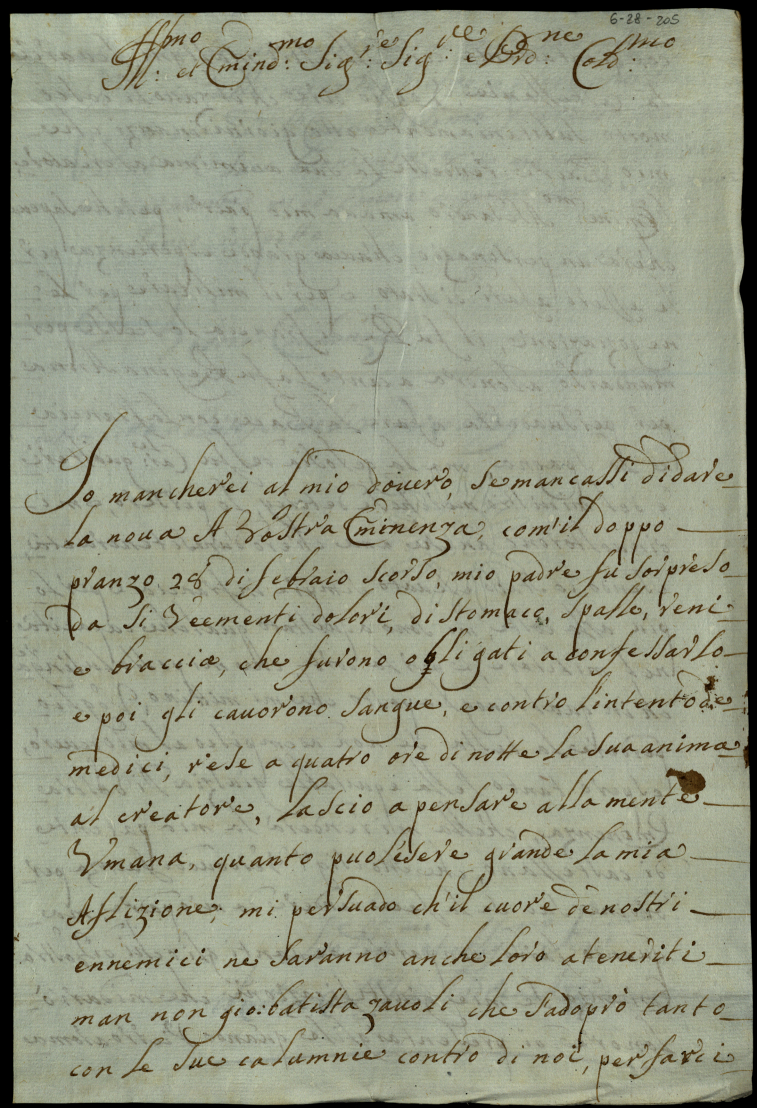 6-28-205
Ill:mo et Emind:mo Sig:re Sig:re e Prd:ne Cold:mo
Io mancherei al mio dovero, se mancassi di dare
la nova A Vostra Eminenza, com'il doppo
pranzo 28 di febraio scorso, mio padre fu sorpreso
da si Veementi dolori, di stomaco, spalle, reni
e braccia, che furono obligati a confessarlo
e poi gli cavorono sangue, e contro l'intento de
medici, rese a quatro ore di notte la sua anima
al creatore, lascio a pensare alla mente
Vmana, quanto puol'esere grande la mia
Aflizione; mi persuado ch'il cuore de nostri
ennemici ne saranno anche loro ateneriti
man non gio: batista zavoli che s'adoprò tanto
con le sue calumnie contro di noi, per farci